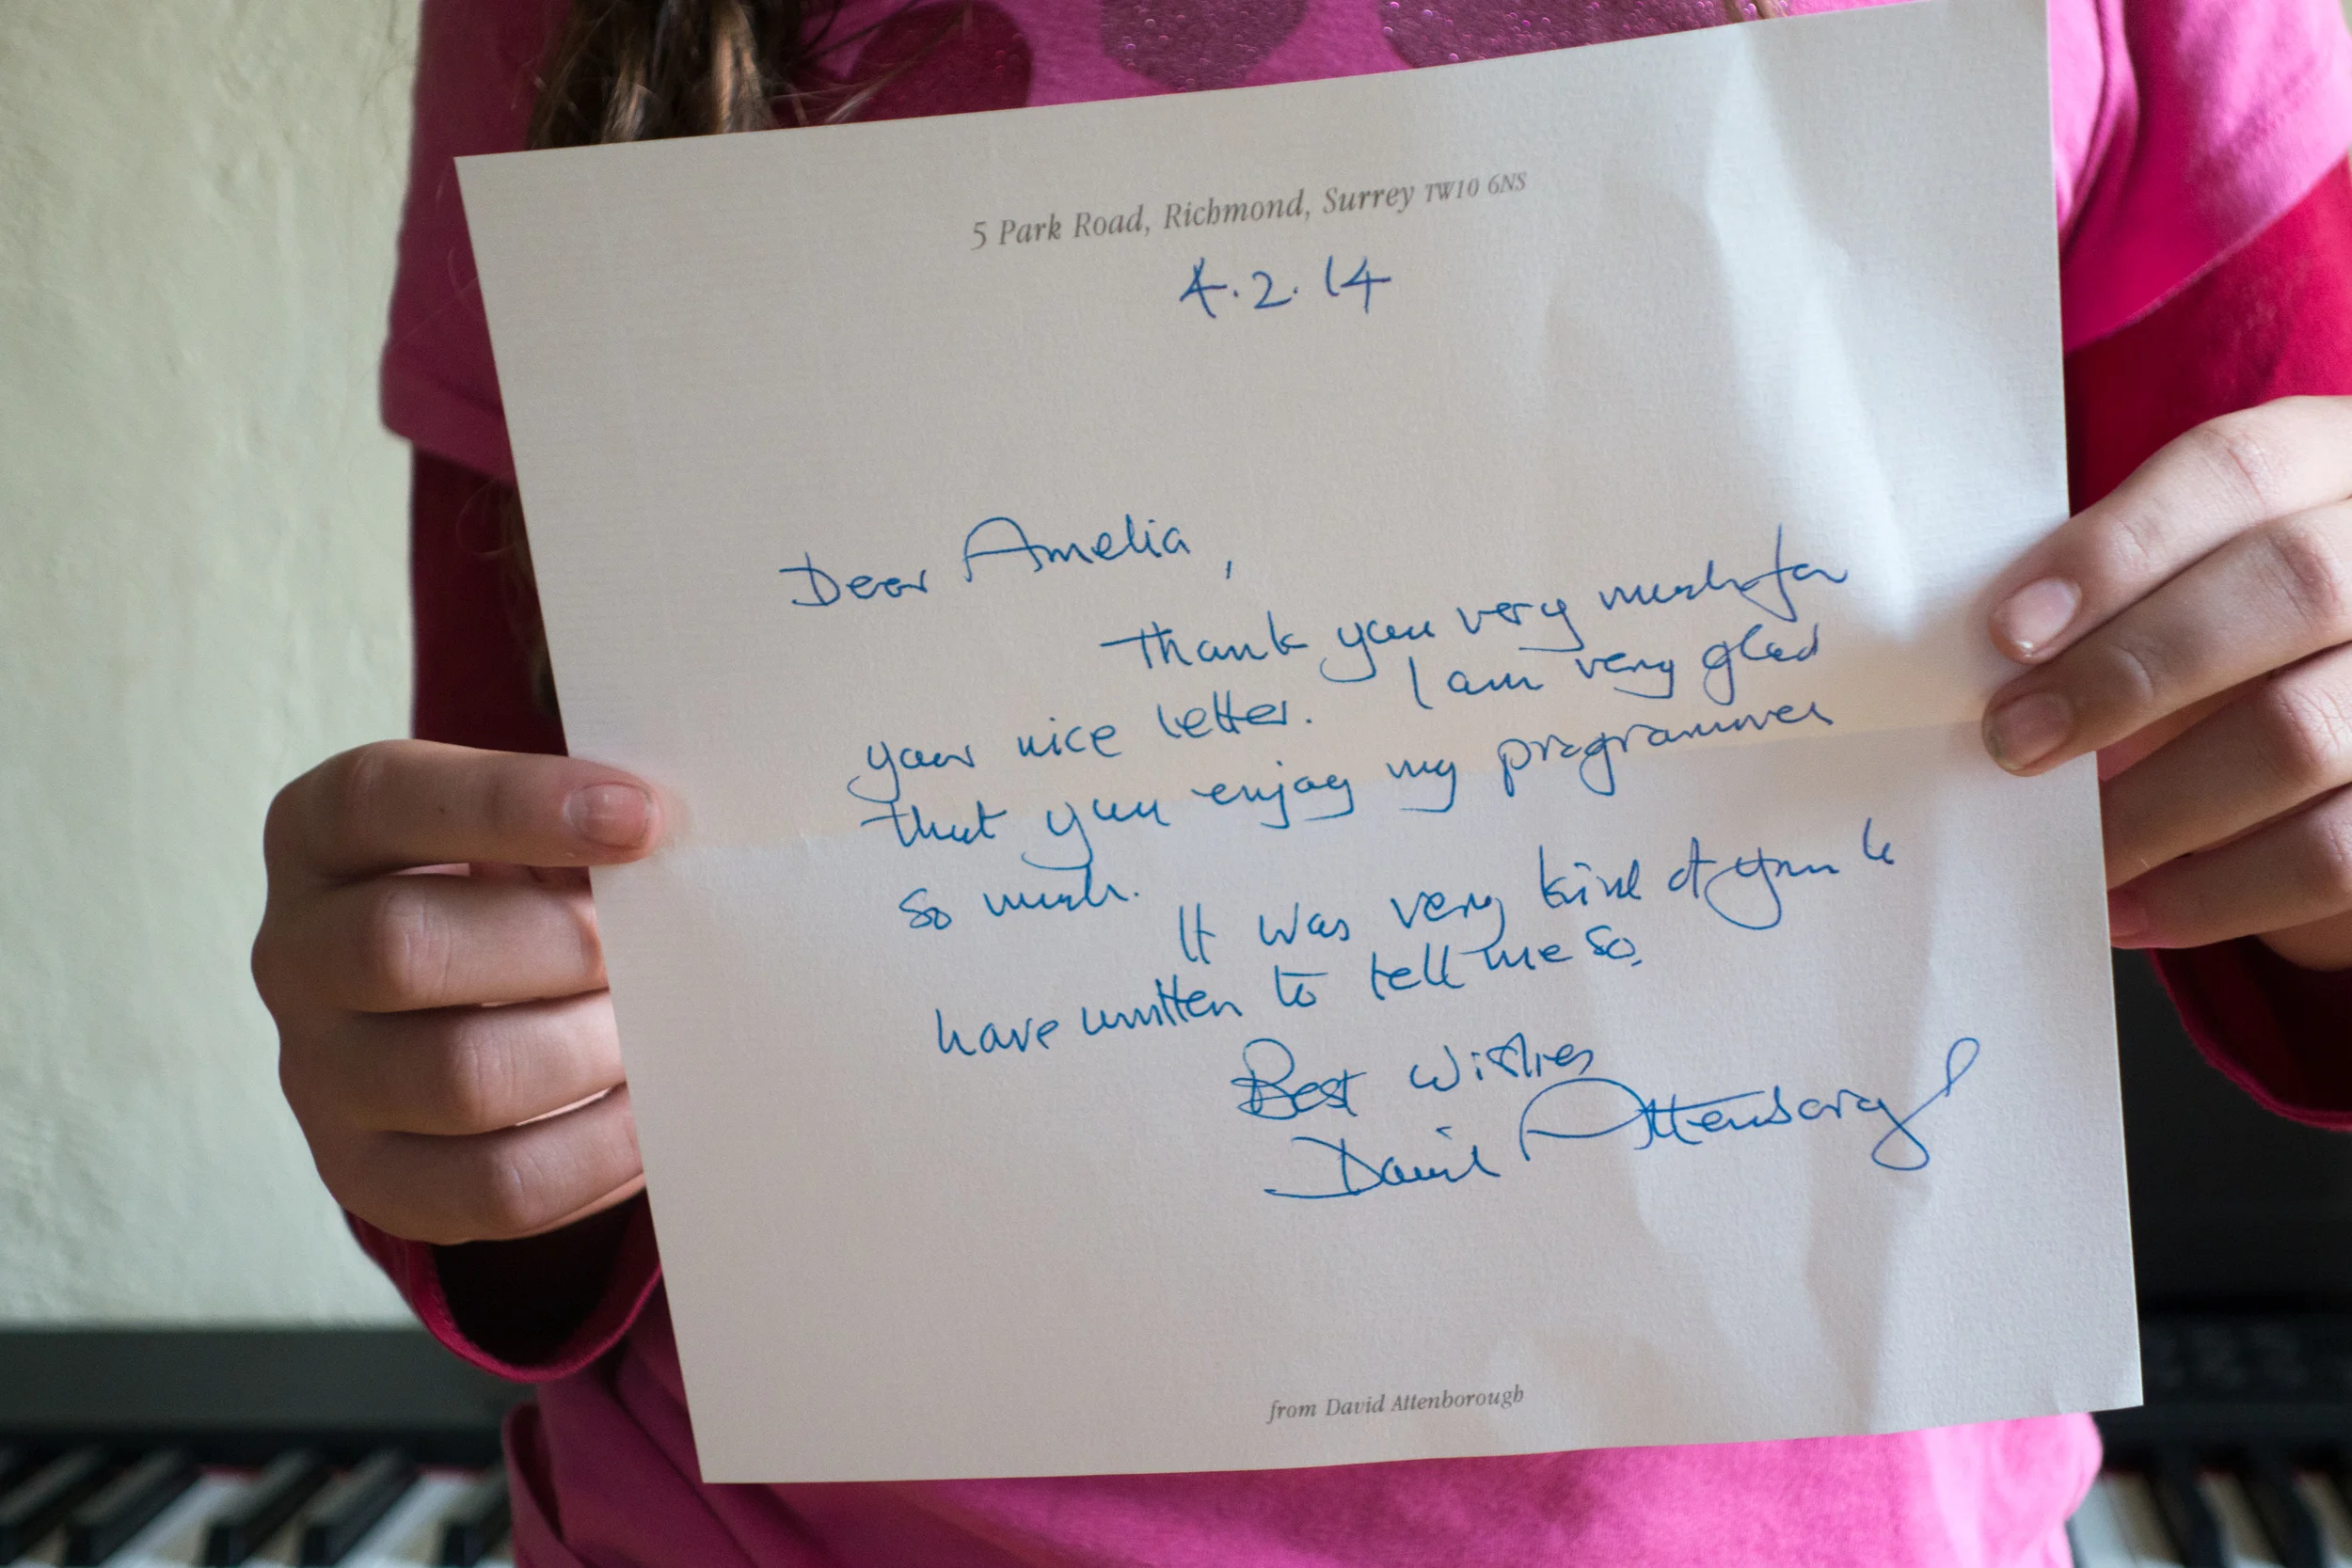 5 Park Road, Richmond, Surrey TW10 6NS
4.2.14
Dear Amelia,
Thank you very much for
your nice letter. I am very glad
that you enjoy my programmes
so much. It was very kind of you to
have written to tell me so.
Best Wishes
David Attenborough
from David Attenborough